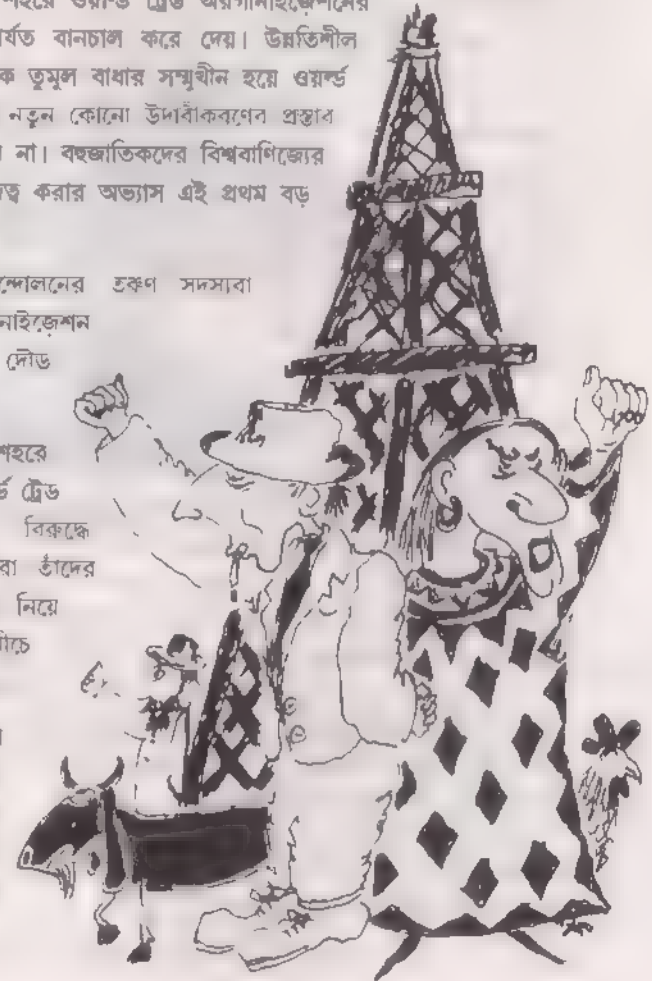 শহরে ওয়ার্ল্ড ট্রেড অরগানাইজেশনের
র্যত বানচাল করে দেয়। উন্নতিশীল
ক তুমুল বাধার সম্মুখীন হয়ে ওয়র্ল্ড
নতুন কোনো উদারীকরণের প্রস্তাব
না। বহুজাতিকদের বিশ্ববাণিজ্যের
ত্ব করার অভ্যাস এই প্রথম বড়
ন্দোলনের তরুণ সদস্যরা
নাইজেশন
দৌড়
শহরে
র্ল্ড ট্রেড
বিরুদ্ধে
রা তাঁদের
নিয়ে
নীচে